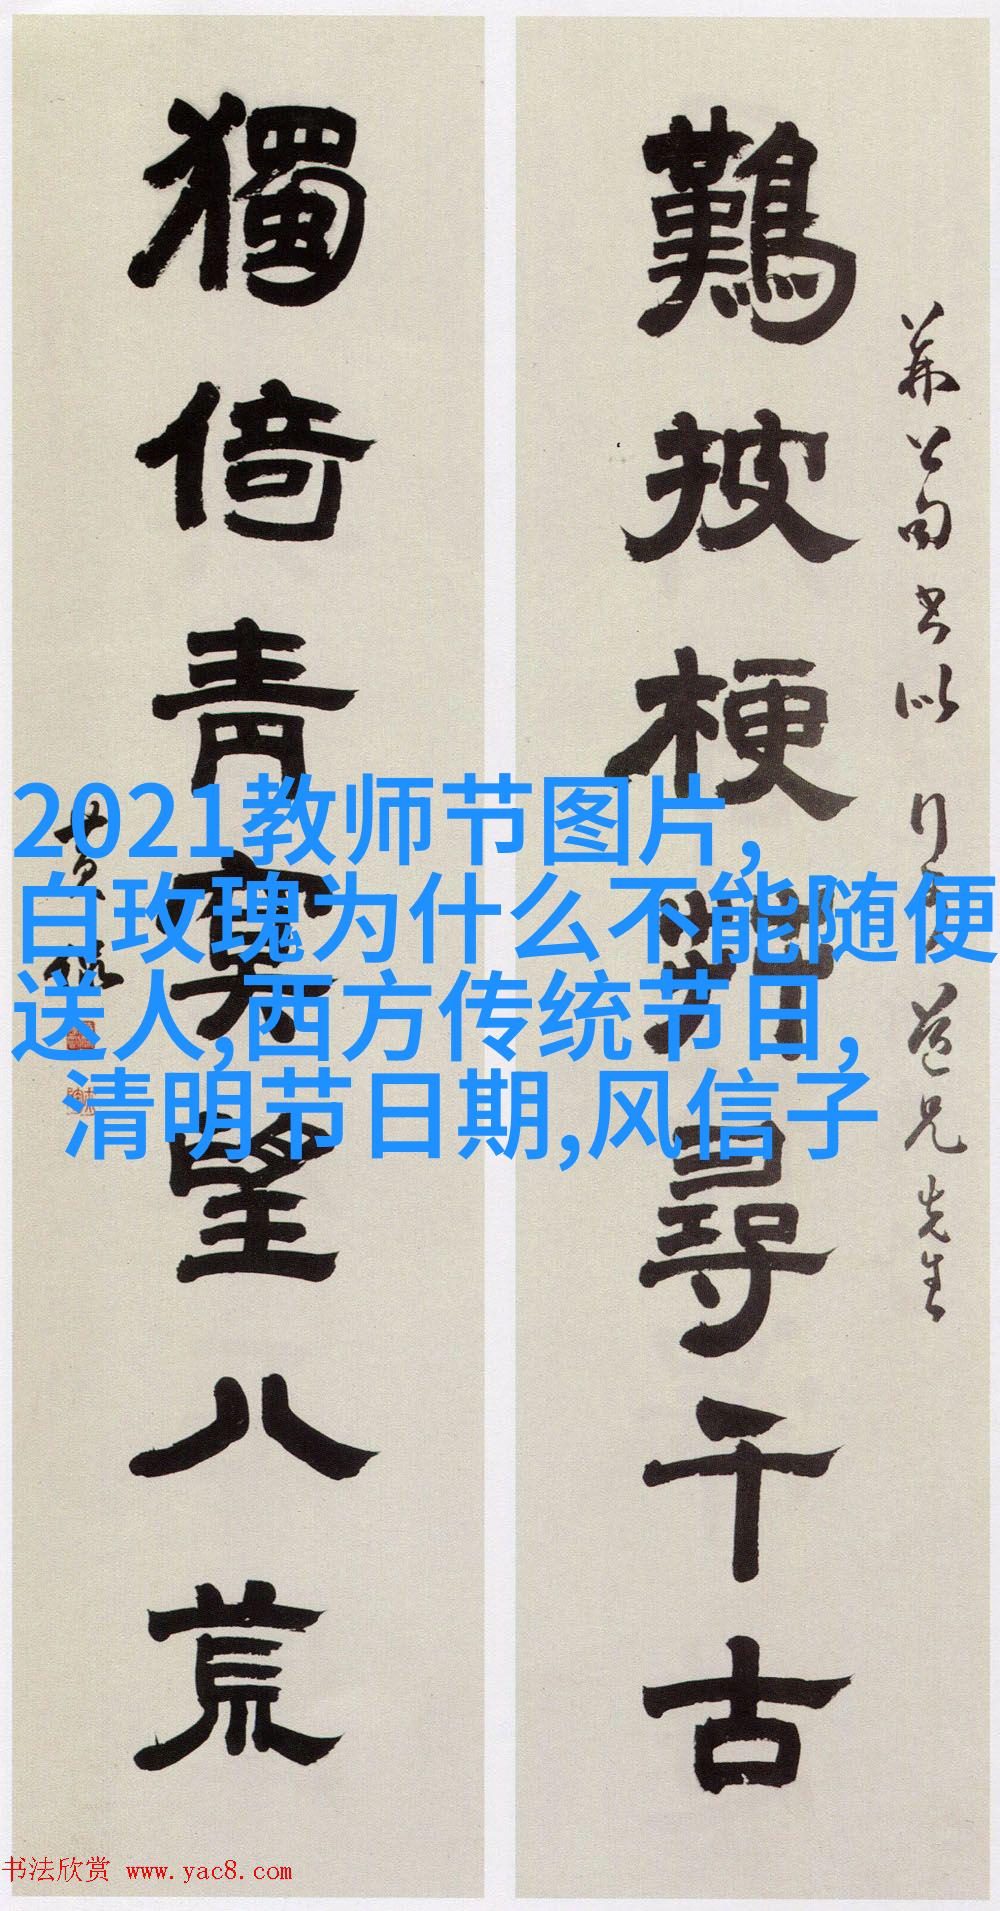 難披梗莽尋千古
獨倚青寥望八荒
先生
2021教师节图片,
白玫瑰为什么不能随便
送人,西方传统节日,
清明节日期,风信子
书法欣赏 www.yac8.com